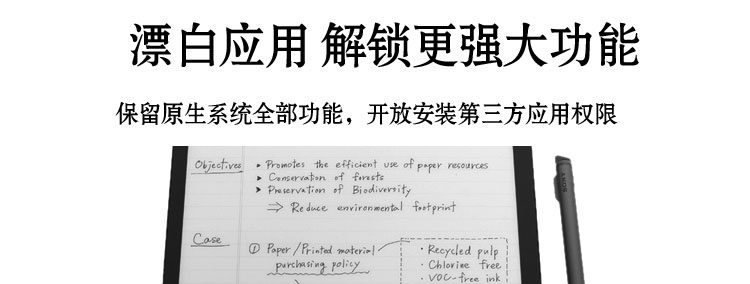 漂白应用 解锁更强大功能
保留原生系统全部功能，开放安装第三方应用权限
Objectives
▸ Promotes the efficient use of paper resources
▸ Conservation of forests
▸ Preservation of Biodiversity
⇒ Reduce environmental footprint
SONY
Case
① Paper/Printed material
purchasing policy
· Recycled pulp
· Chlorine free
· VOC-free ink